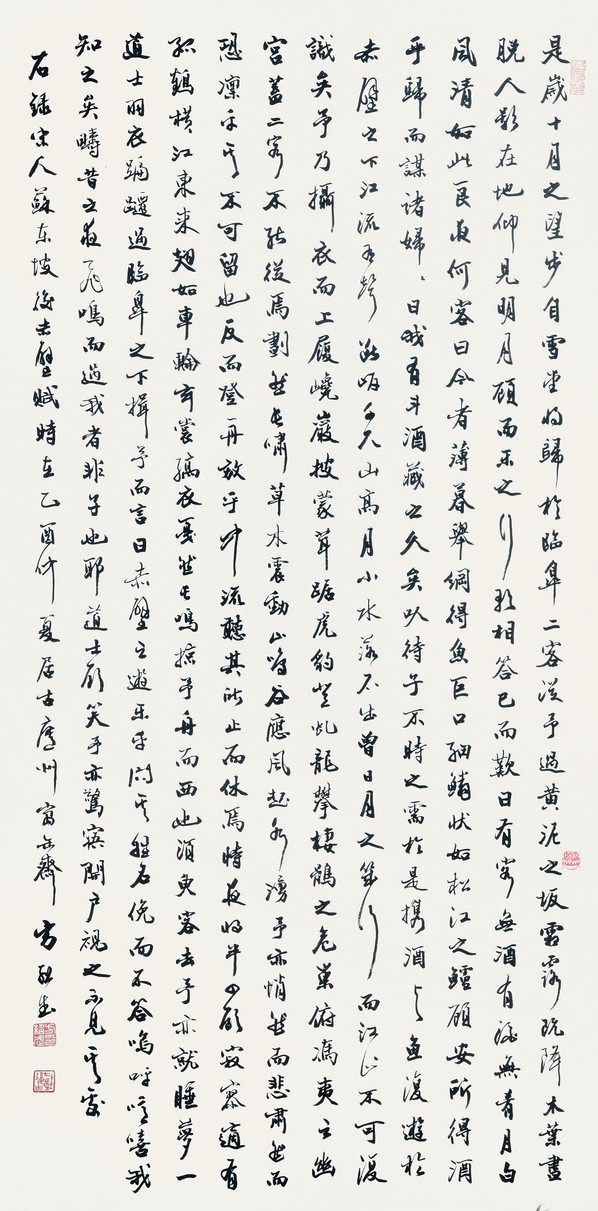 是歲十月之望步自雪堂將歸於臨皋二客從予過黃泥之坂霜露既降木葉盡
脫人影在地仰見明月顧而樂之行歌相答已而歎曰有客無酒有酒無肴月白
風清如此良夜何客曰今者薄暮舉網得魚巨口細鱗狀如松江之鱸顧安所得酒
乎歸而謀諸婦、曰我有斗酒藏之久矣以待子不時之需於是攜酒與魚復遊於
赤壁之下江流有聲斷岸千尺山高月小水落石出曾日月之幾何而江山不可復
識矣予乃攝衣而上履巉巖披蒙茸踞虎豹登虬龍攀棲鶻之危巢俯馮夷之幽
宮蓋二客不能從焉劃然長嘯草木震動山鳴谷應風起水湧予亦悄然而悲肅然而
恐凜乎其不可留也反而登舟放乎中流聽其所止而休焉時夜將半四顧寂寥適有
孤鶴橫江東來翅如車輪玄裳縞衣戛然長鳴掠予舟而西也須臾客去予亦就睡夢一
道士羽衣蹁躚過臨皋之下揖予而言曰赤壁之遊樂乎問其姓名俛而不答嗚呼噫嘻我
知之矣疇昔之夜飛鳴而過我者非子也耶道士顧笑予亦驚寤開戶視之不見其處
右錄宋人蘇東坡後赤壁賦時在乙酉仲夏居古廬州寓齋